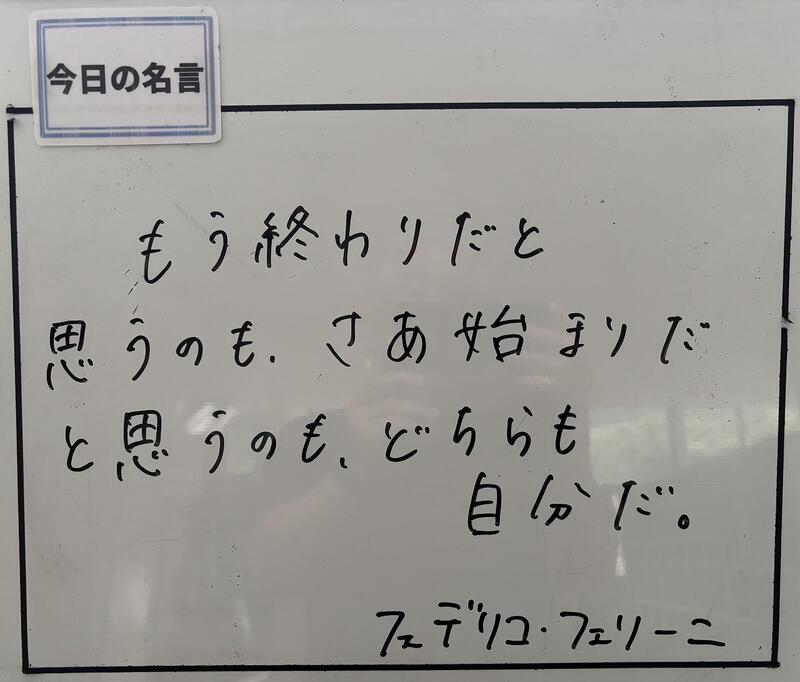 今日の名言
もう終わりだと
思うのも、さあ始まりだ
と思うのも、どちらも
自分だ。
フェデリコ・フェリーニ